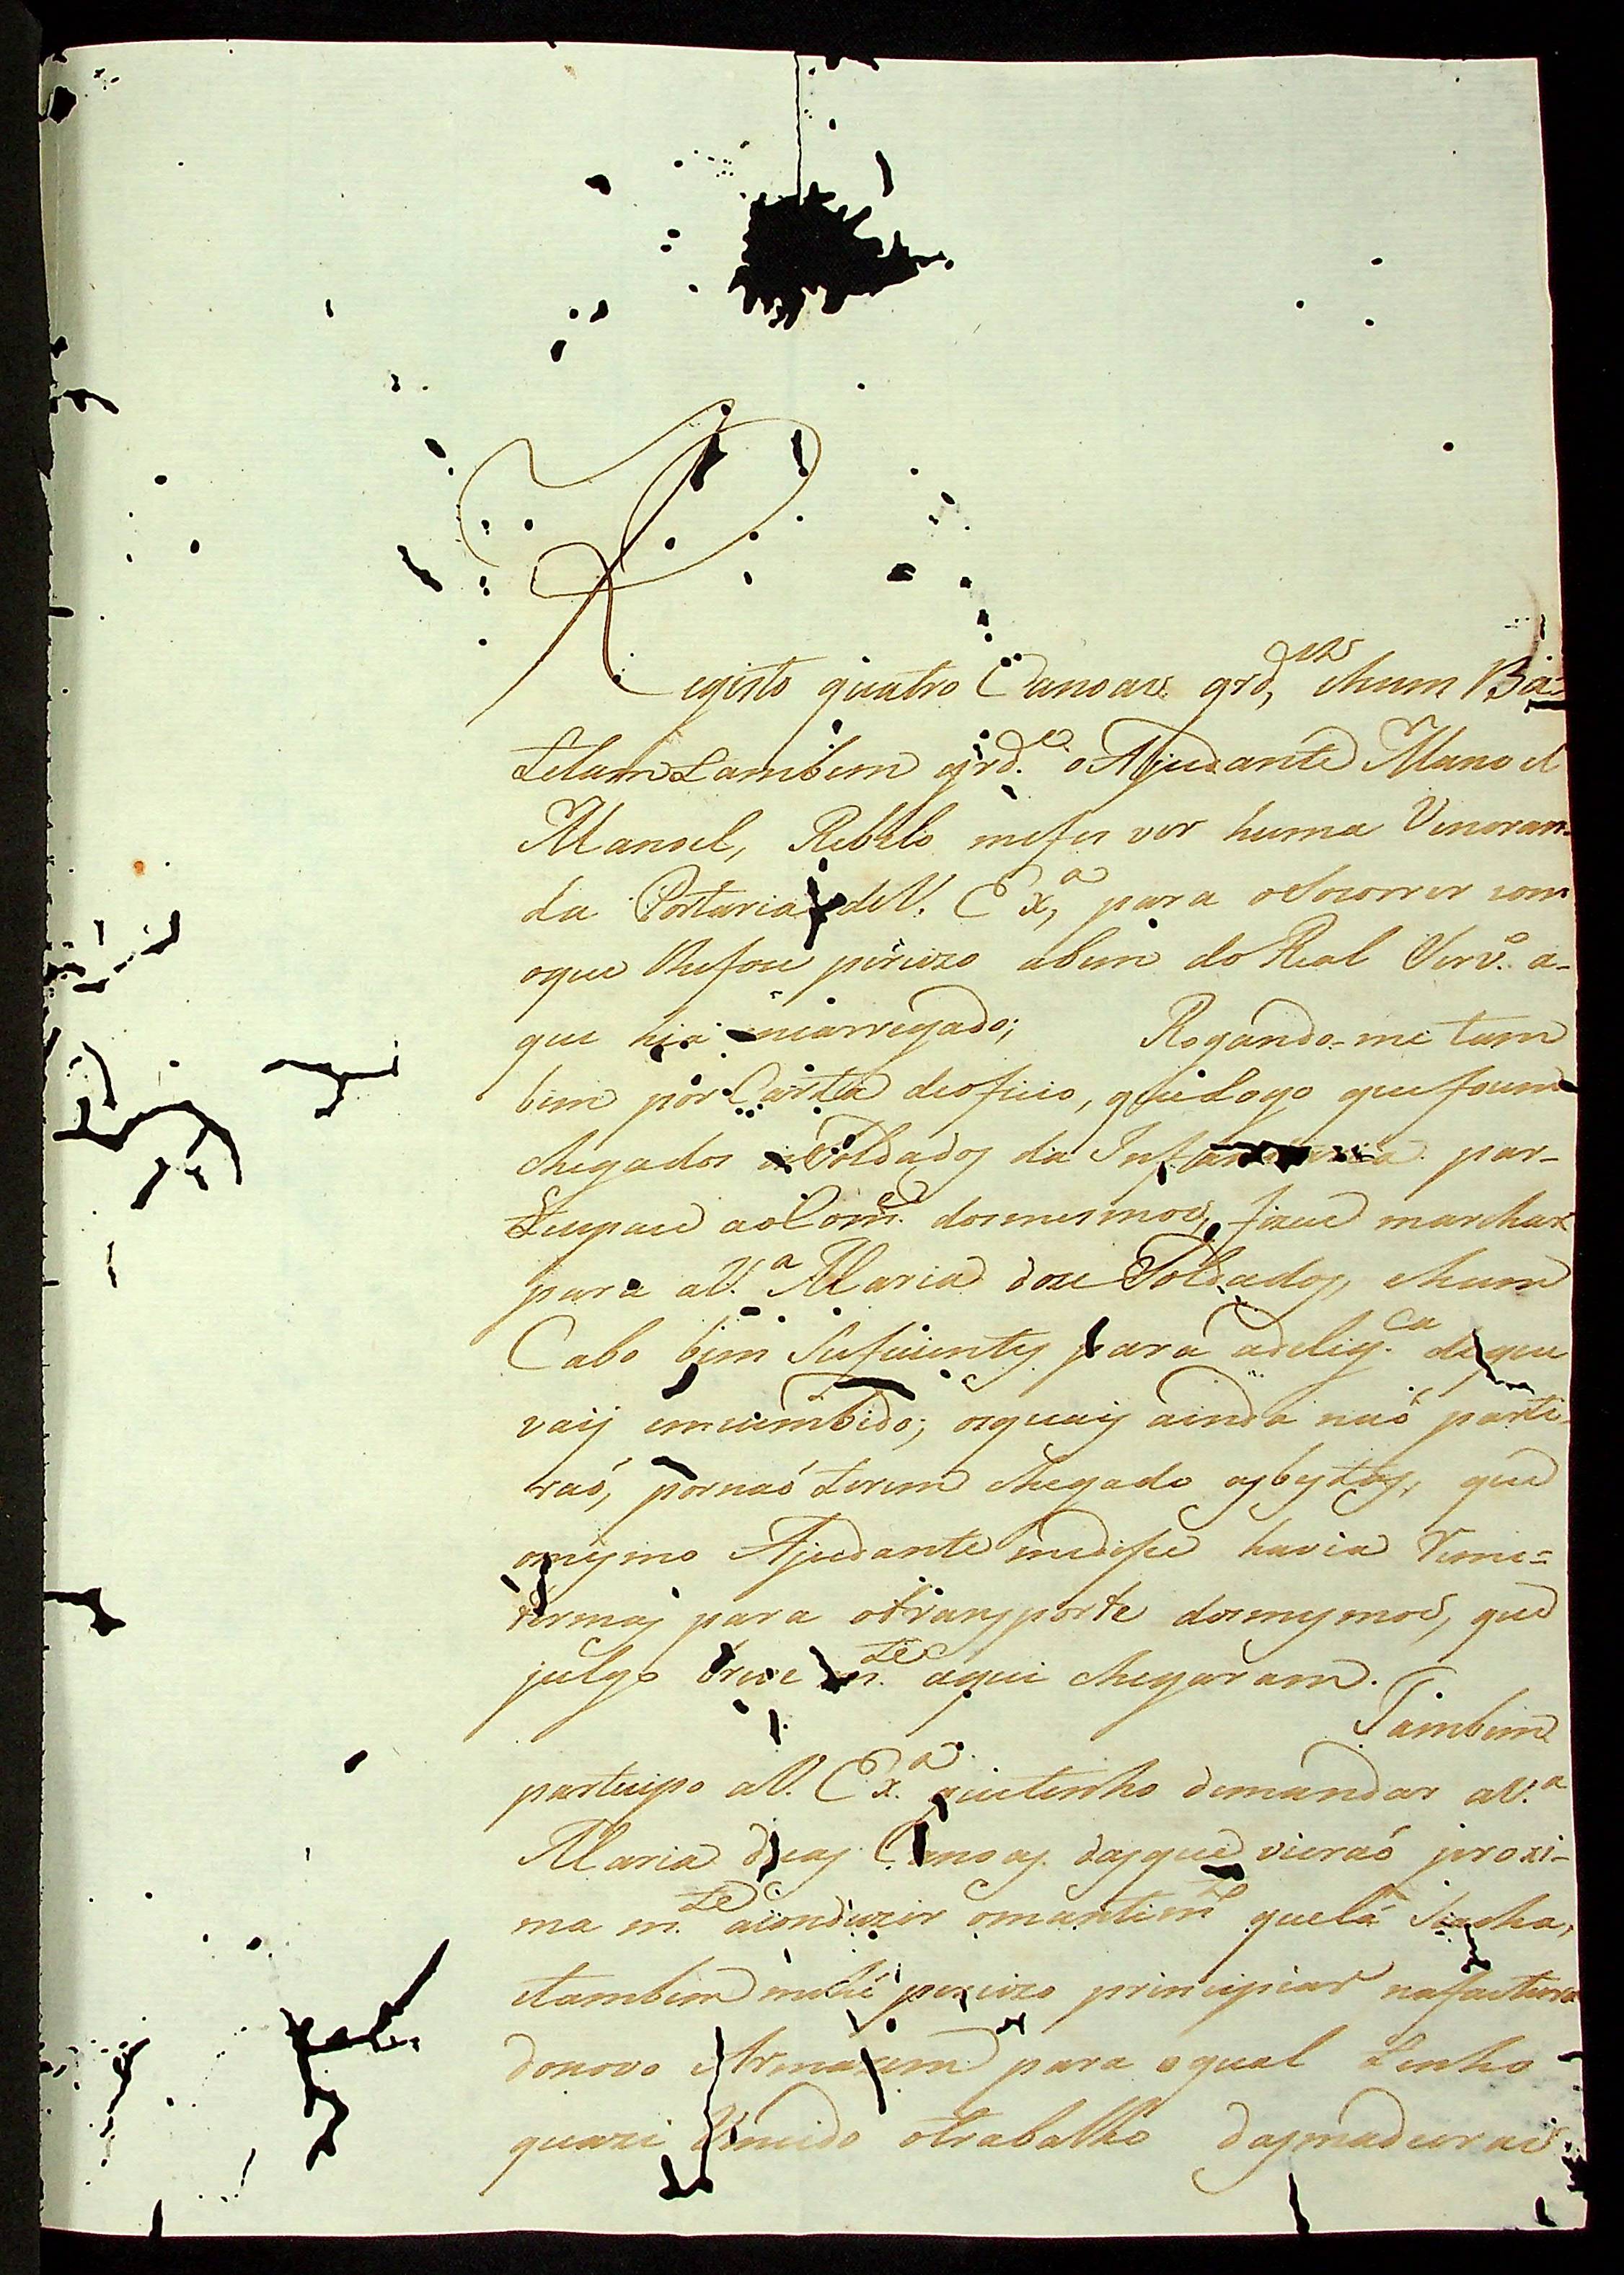 Registo quatro Canoas grd,es ehum Ba-
telam tambem grd.e o Ajudante Manoel
Manoel, Rebelo mefes ver huma Veneran-
da Portaria deV. Ex,a para oSocorrer com
oque lhefose perciozo abem do Real Serv.o a-
que hia incarregado; Rogando-me tam
bem por Carta deoficio, queLogo quefosem
chegados os Soldados da Infantaria par-
tecipace aoCom.e dosmesmos, fizece marchar
para aV.a Maria doze Soldados, ehum
Cabo bem Suficientes para adelig.ca deque
vais emcumbido; osquais ainda naó parti-
raó, pornaó terem chegado asbestas, que
omesmo Ajudante medise havia
para otransporte dosmesmos, que
julgo breve m.te aqui chegaram.
Tambem
partecipo aV. Ex.a quetenho demandar aV.a
Maria duas Canoas dasque vieraó proxi-
ma m.te aconduzir omantim.to quelá Seacha,
etambem mehé perciozo principiar nafactura
donovo Armazem para oqual tenho
quazi Vencido otrabalho dasmadeiras.